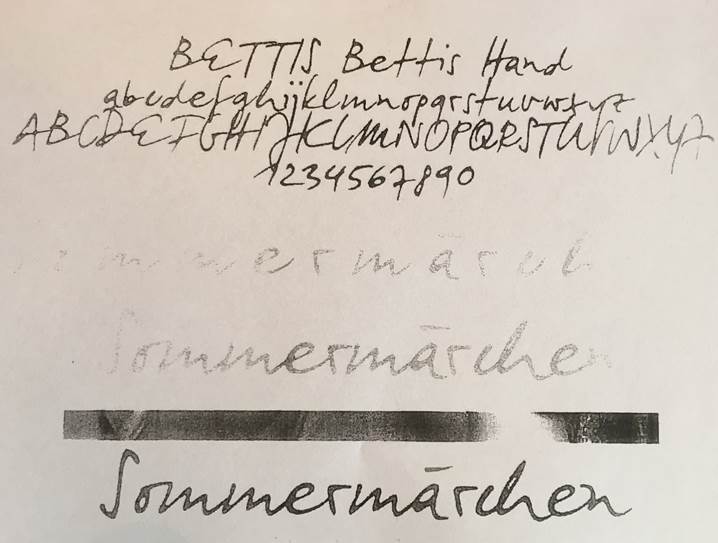 BETTIS Bettis Hand
abcdefghijklmnopqrstuvwxyz
ABCDEFGHIJKLMNOPQRSTUVWXYZ
1234567890
Sommermärchen
Sommermärchen
Sommermärchen